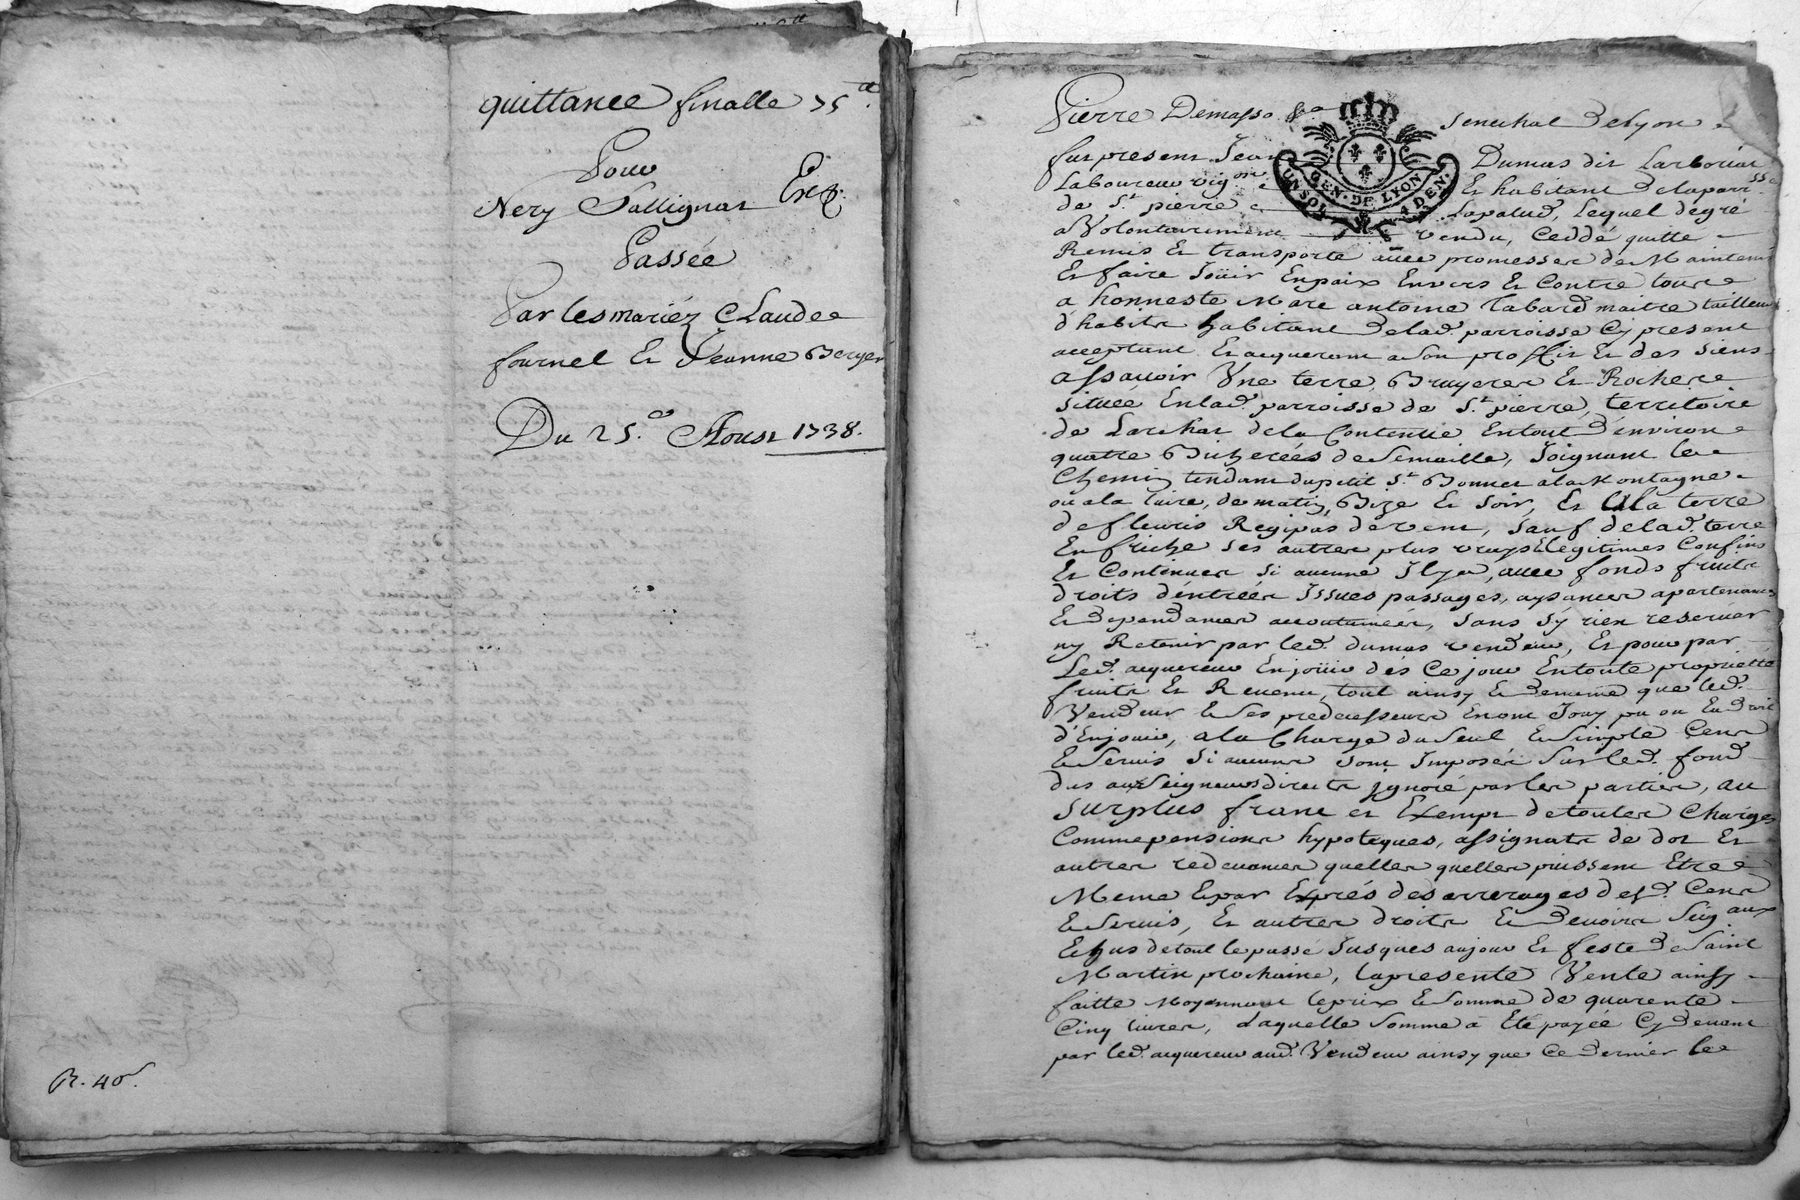 quittance finalle 75tt.
Pour
Nery Sallignat Exp.
Passée
Par les mariéz Claude
fournel Et Jeanne Berger
Du 25.e Aoust 1738.
R. 40s.
Pierre Demasso &a senechal de lyon
fut present Jean Dumas dit Larboriat
Laboureur vigon Et habitant de la parrsse
de St. pierre Lapalud, Lequel de gré
a Volontairement vendu, Ceddé quitté
Remis Et transporté avec promesses de Maintenir
Et faire Joüir En paix Envers Et Contre tous
a honneste Marc antoine Tabard maitre tailleur
d'habits habitant de lad. parroisse Cy present
acceptant Et acquerant a son proffit Et des siens
assavoir Vne terre Bruyeres Et Rochere
située En lad. parroisse de St. pierre, territoire
de Larchat de la Contenüe En tout d'environ
quatre Bicherées de Semaille, Joignant le
Chemin tendant du petit St. Bonnet a la Montagne
ou a la Cuire, de matin, Bize Et soir, Et la terre
de fleuris Regipas de vent, sauf de lad. terre
En friche ses autres plus vrays & legitimes Confins
Et Contenues si aucune Il y a, avec fonds fruits
droits d'éntrées Issues passages, aysances apartenances
Et dependances accoutumées, sans s'y rien reserver
ny Retenir par led. dumas vendeur, Et pour par
Led. acquereur En joüir dés Ce jour En toute proprietté
fruits Et Revenu, tout ainsy & de meme que led.
Vendeur & ses predecesseurs En ont Jouy pu ou Eu droit
d'En joüir, a la Charge du seul & simple Cens
& servis si aucuns sont Imposés sur led. fond
dus aux Seigneurs directs Ignoré par les parties, au
surplus franc et Exempt de toutes Charges
Comme pensions hypoteques, assignats de dot Et
autres redevances quelles quelles puissent Etre
Meme & par Exprés des arrerages desd. Cens
& servis, Et autres droits & devoirs Seigaux
Echus de tout le passé Jusques aujour Et feste de Saint
Martin prochaine, la presente Vente ainsy
faitte Moyennant le prix & somme de quarente
Cinq livres, Laquelle somme a Eté payée Cy devant
par led. acquereur aud. Vendeur ainsy que Ce dernier le
GEN. DE LYON
UN SOL 4 DEN.